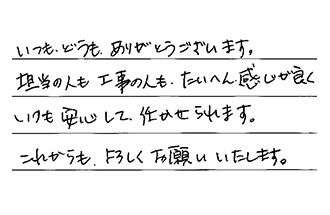 いつも、どうも、ありがとうございます。
担当の人も工事の人も、たいへん感じが良く
いつも安心して、任かせられます。
これからも、よろしくお願いいたします。